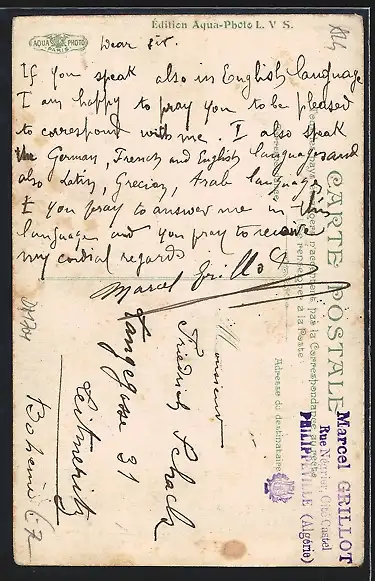 Édition Aqua-Photo L. V. S.
AQUA PHOTO
PARIS
Dear sir.
If you speak also in English language
I am happy to pray you to be pleased
to correspond with me I also speak
the German, French and English languages and
also Latin, Grecian, Arab languages
I you pray to answer me in this
language and you pray to receive
my cordial regards
Marcel Grillot
CARTE POSTALE
pas la Correspondance au recto
(se renseigner à la Poste)
Adresse du destinataire
Marcel GRILLOT
PHILIPPEVILLE (Algérie)
Monsieur
Friedrich Schack
Langegasse 31
Leitmeritz
Bohême